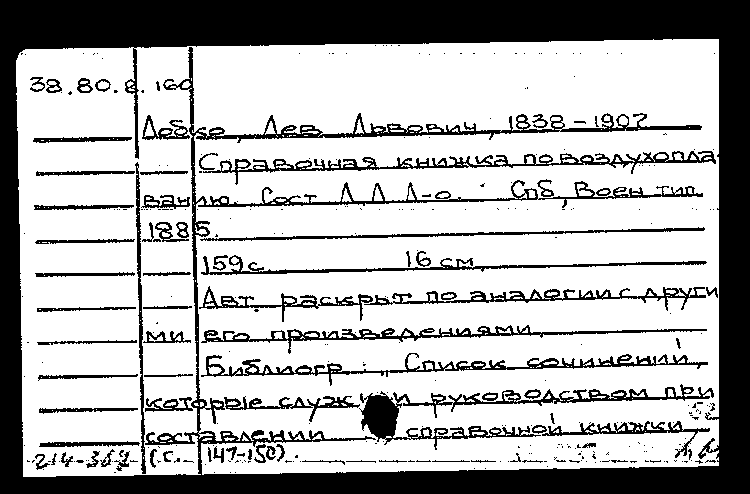 38.80.8.160
Лобко, Лев Львович, 1838-1907
Справочная книжка по воздухопла-
ванию. Сост Л Л Л-о. Спб, Воен тип.
1885.
159 с. 16 см.
Авт. раскрыт по аналогии с други
ми его произведениями.
Библиогр.: „Список сочинений,
которые служили руководством при
составлении справочной книжки
214-369 (с. 147-150).